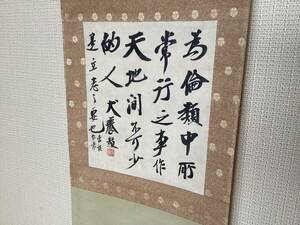 為倫類中所
常行之事作
天地間不可少
的人犬養毅
是立志之要也